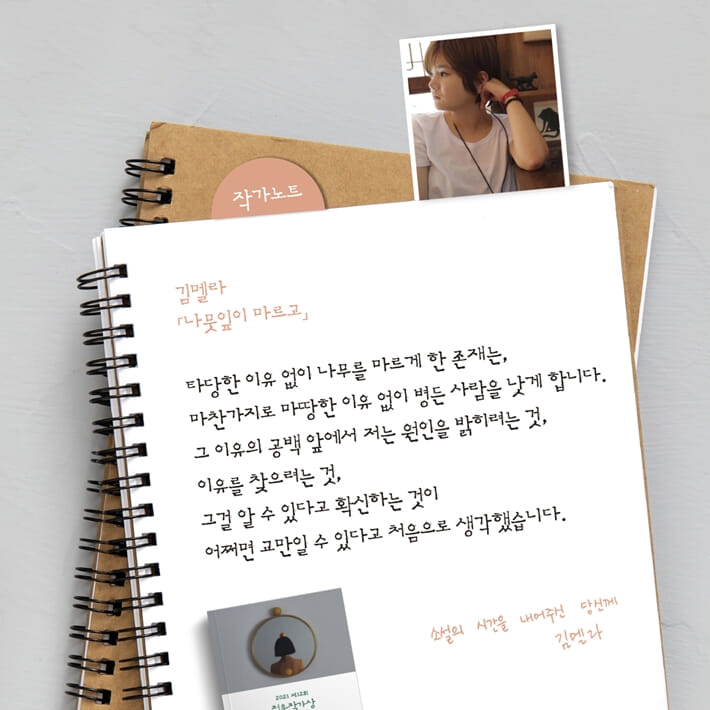 작가노트
김멜라
「나뭇잎이 마르고」
타당한 이유 없이 나무를 마르게 한 존재는,
마찬가지로 마땅한 이유 없이 병든 사람을 낫게 합니다.
그 이유의 공백 앞에서 저는 원인을 밝히려는 것,
이유를 찾으려는 것,
그걸 알 수 있다고 확신하는 것이
어쩌면 교만일 수 있다고 처음으로 생각했습니다.
소설의 시간을 내어주신 당신께
김멜라
2021 제12회
젊은작가상